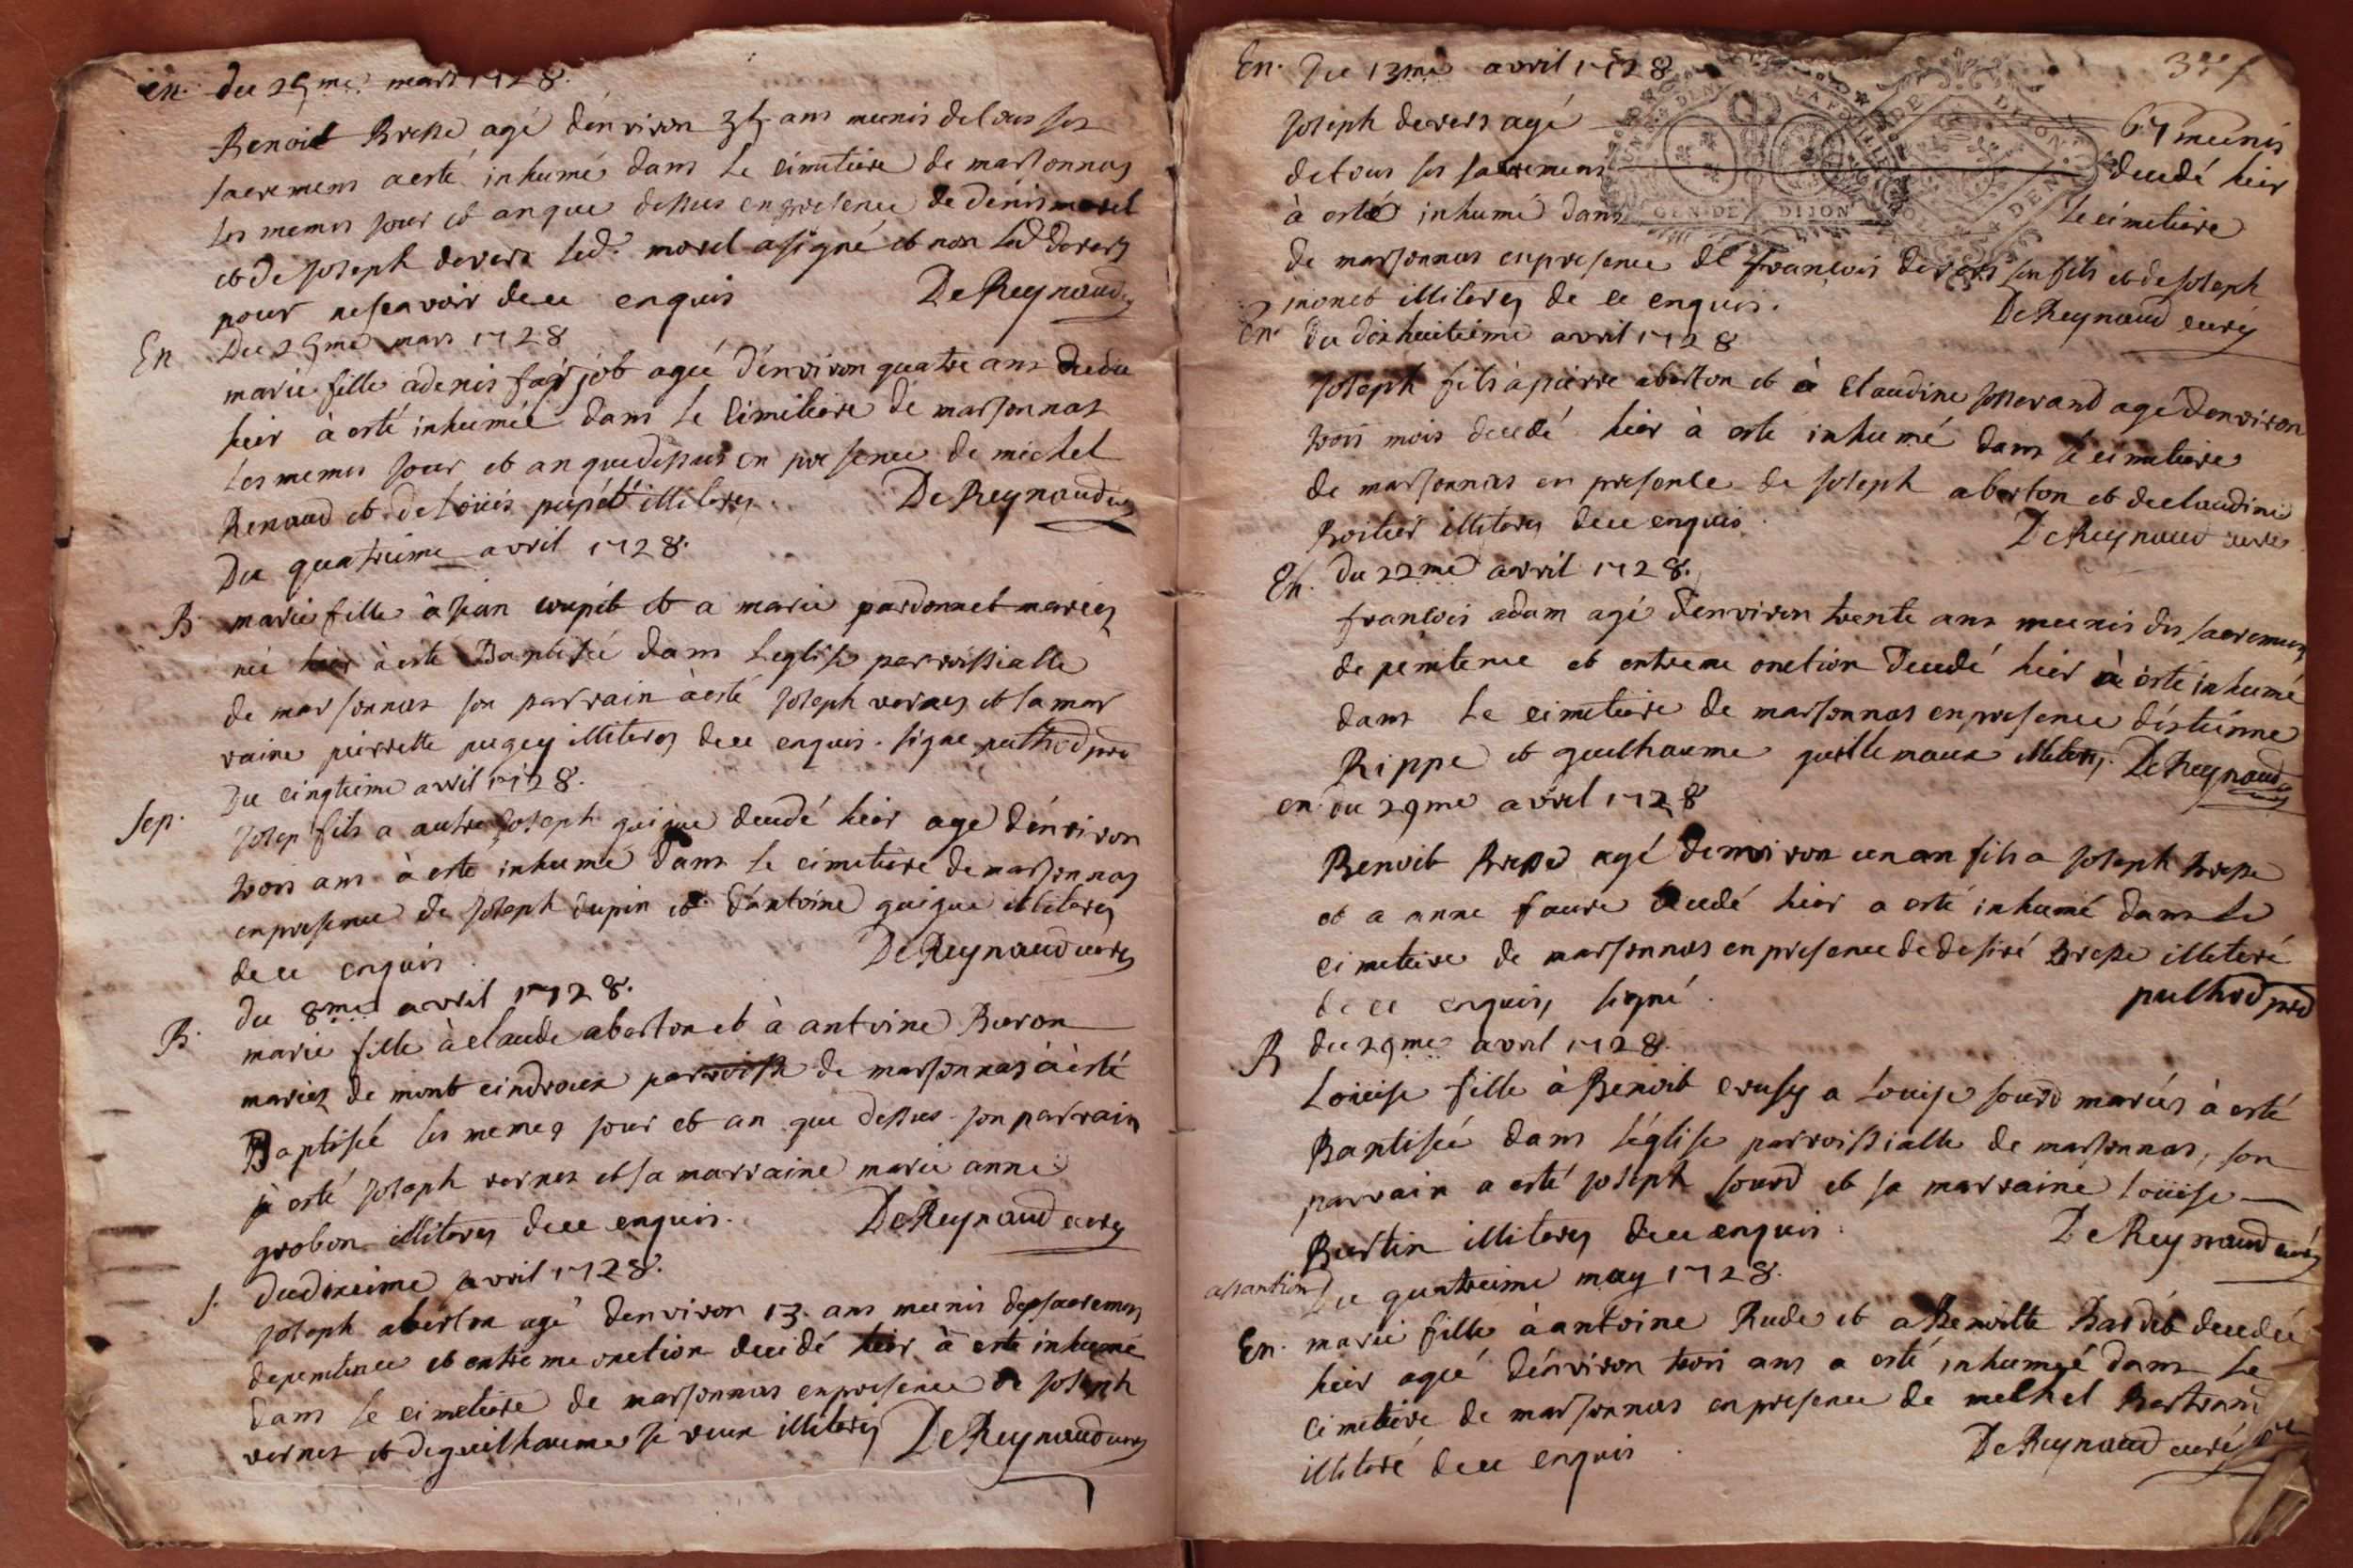 en. du 25me. mars 1728.
Benoit Bresse agé dénviron 35 ans munis de tous ses
sacremens a esté inhumé dans le cimetiere de marsonnas
les memes jour et an que dessus en presence de dénis morel
et de joseph devers led. morel a signé et non led devers
pour ne scavoir de ce enquis DeReynaud
En Du 29me mars 1728
marie fille a denis job ageé d'énviron quatre ans
hier à esté inhumeé dans le Cimetiere de marsonnas
les memes jour et an que dessus en presence de michel
Renaud et de Loüis pupét illiteres. DeReynaud
Du quatrieme avril 1728.
B marie fille à jean et a marie pardonnet mariés
neé hier à esté Baptiseé dans Leglise parroissialle
de marsonnas son parrain à esté joseph vernes et sa mar
raine pierrette pugey illiteres de ce enquis. signe puthod
Du cinqteime avril 1728.
sep. josep fils a autre joseph guigue decedé hier agé dénviron
trois ans à esté inhumé dans le cimetiere de marsonnas
en presence de joseph dupin et d'antoine guigue illiteres
de ce enquis. DeReynaud curé
du 8me avril 1728.
B. marie fille à claude aberton et à antoine Buron
mariez de mont cindroux parroisse de marsonnas à èsté
Baptiseé les memes jour et an que dessus son parrain
à esté joseph vernes et sa marraine marie anne
grobon illiteres de ce enquis. DeReynaud curé
du dixieime avril 1728.
s. joseph aberton agé denviron 13. ans munis des sacremens
de penitence et entreme onction decedé hier à esté inhumé
dans le cimetiere de marsonnas en presence de joseph
vernes et de guilhaume illiteres DeReynaud curé
En. Du 13me avril 1728
joseph devers agé 67 munis
de tous ses sacremens decedé hier
à esté inhumé dans le cimetiere
de marsonnas en presence de françois devers son fils et de joseph
monet illiteres de ce enquis. DeReynaud curé
En. du dixhuitieime avril 1728
joseph fils à pierre aberton et à Claudine josserand agé denviron
trois mois decedé hier à esté inhumé dans le cimetiere
de marsonnas en presence de joseph aberton et de claudine
Boitier illiteres de ce enquis. DeReynaud curé
En. du 22me avril 1728.
françois adam agé denviron trente ans munis des sacremens
de penitence et entreme onction decedé hier à esté inhumé
dans le cimetiere de marsonnas en presence déstienne
Rippe et guilhaume guillemaux illiteres. DeReynaud
en du 29me avril 1728
Benoit Bresse agé denviron un an fils a joseph Bresse
et a anne faure decedé hier a esté inhumé dans le
cimetiere de marsonnas en presence de desiré Bresse illiteré
de ce enquis, signé. puthod
B du 29me avril 1728.
Loüise fille à Benoit crusy a Loüise sourd mariés à esté
Baptiseé dans léglise parroissialle de marsonnas, son
parrain a esté joseph sourd et sa marraine Loüise
Burtin illiteres de ce enquis. DeReynaud curé
Du quatrieime may 1728.
En. marie fille à antoine Rude et a Benoitte Bardét decedeé
hier ageé dénviron trois ans a esté inhumeé dans le
cimetiere de marsonnas en presence de Bertrand
illiteré de ce enquis. DeReynaud curé
GEN DE DIJON